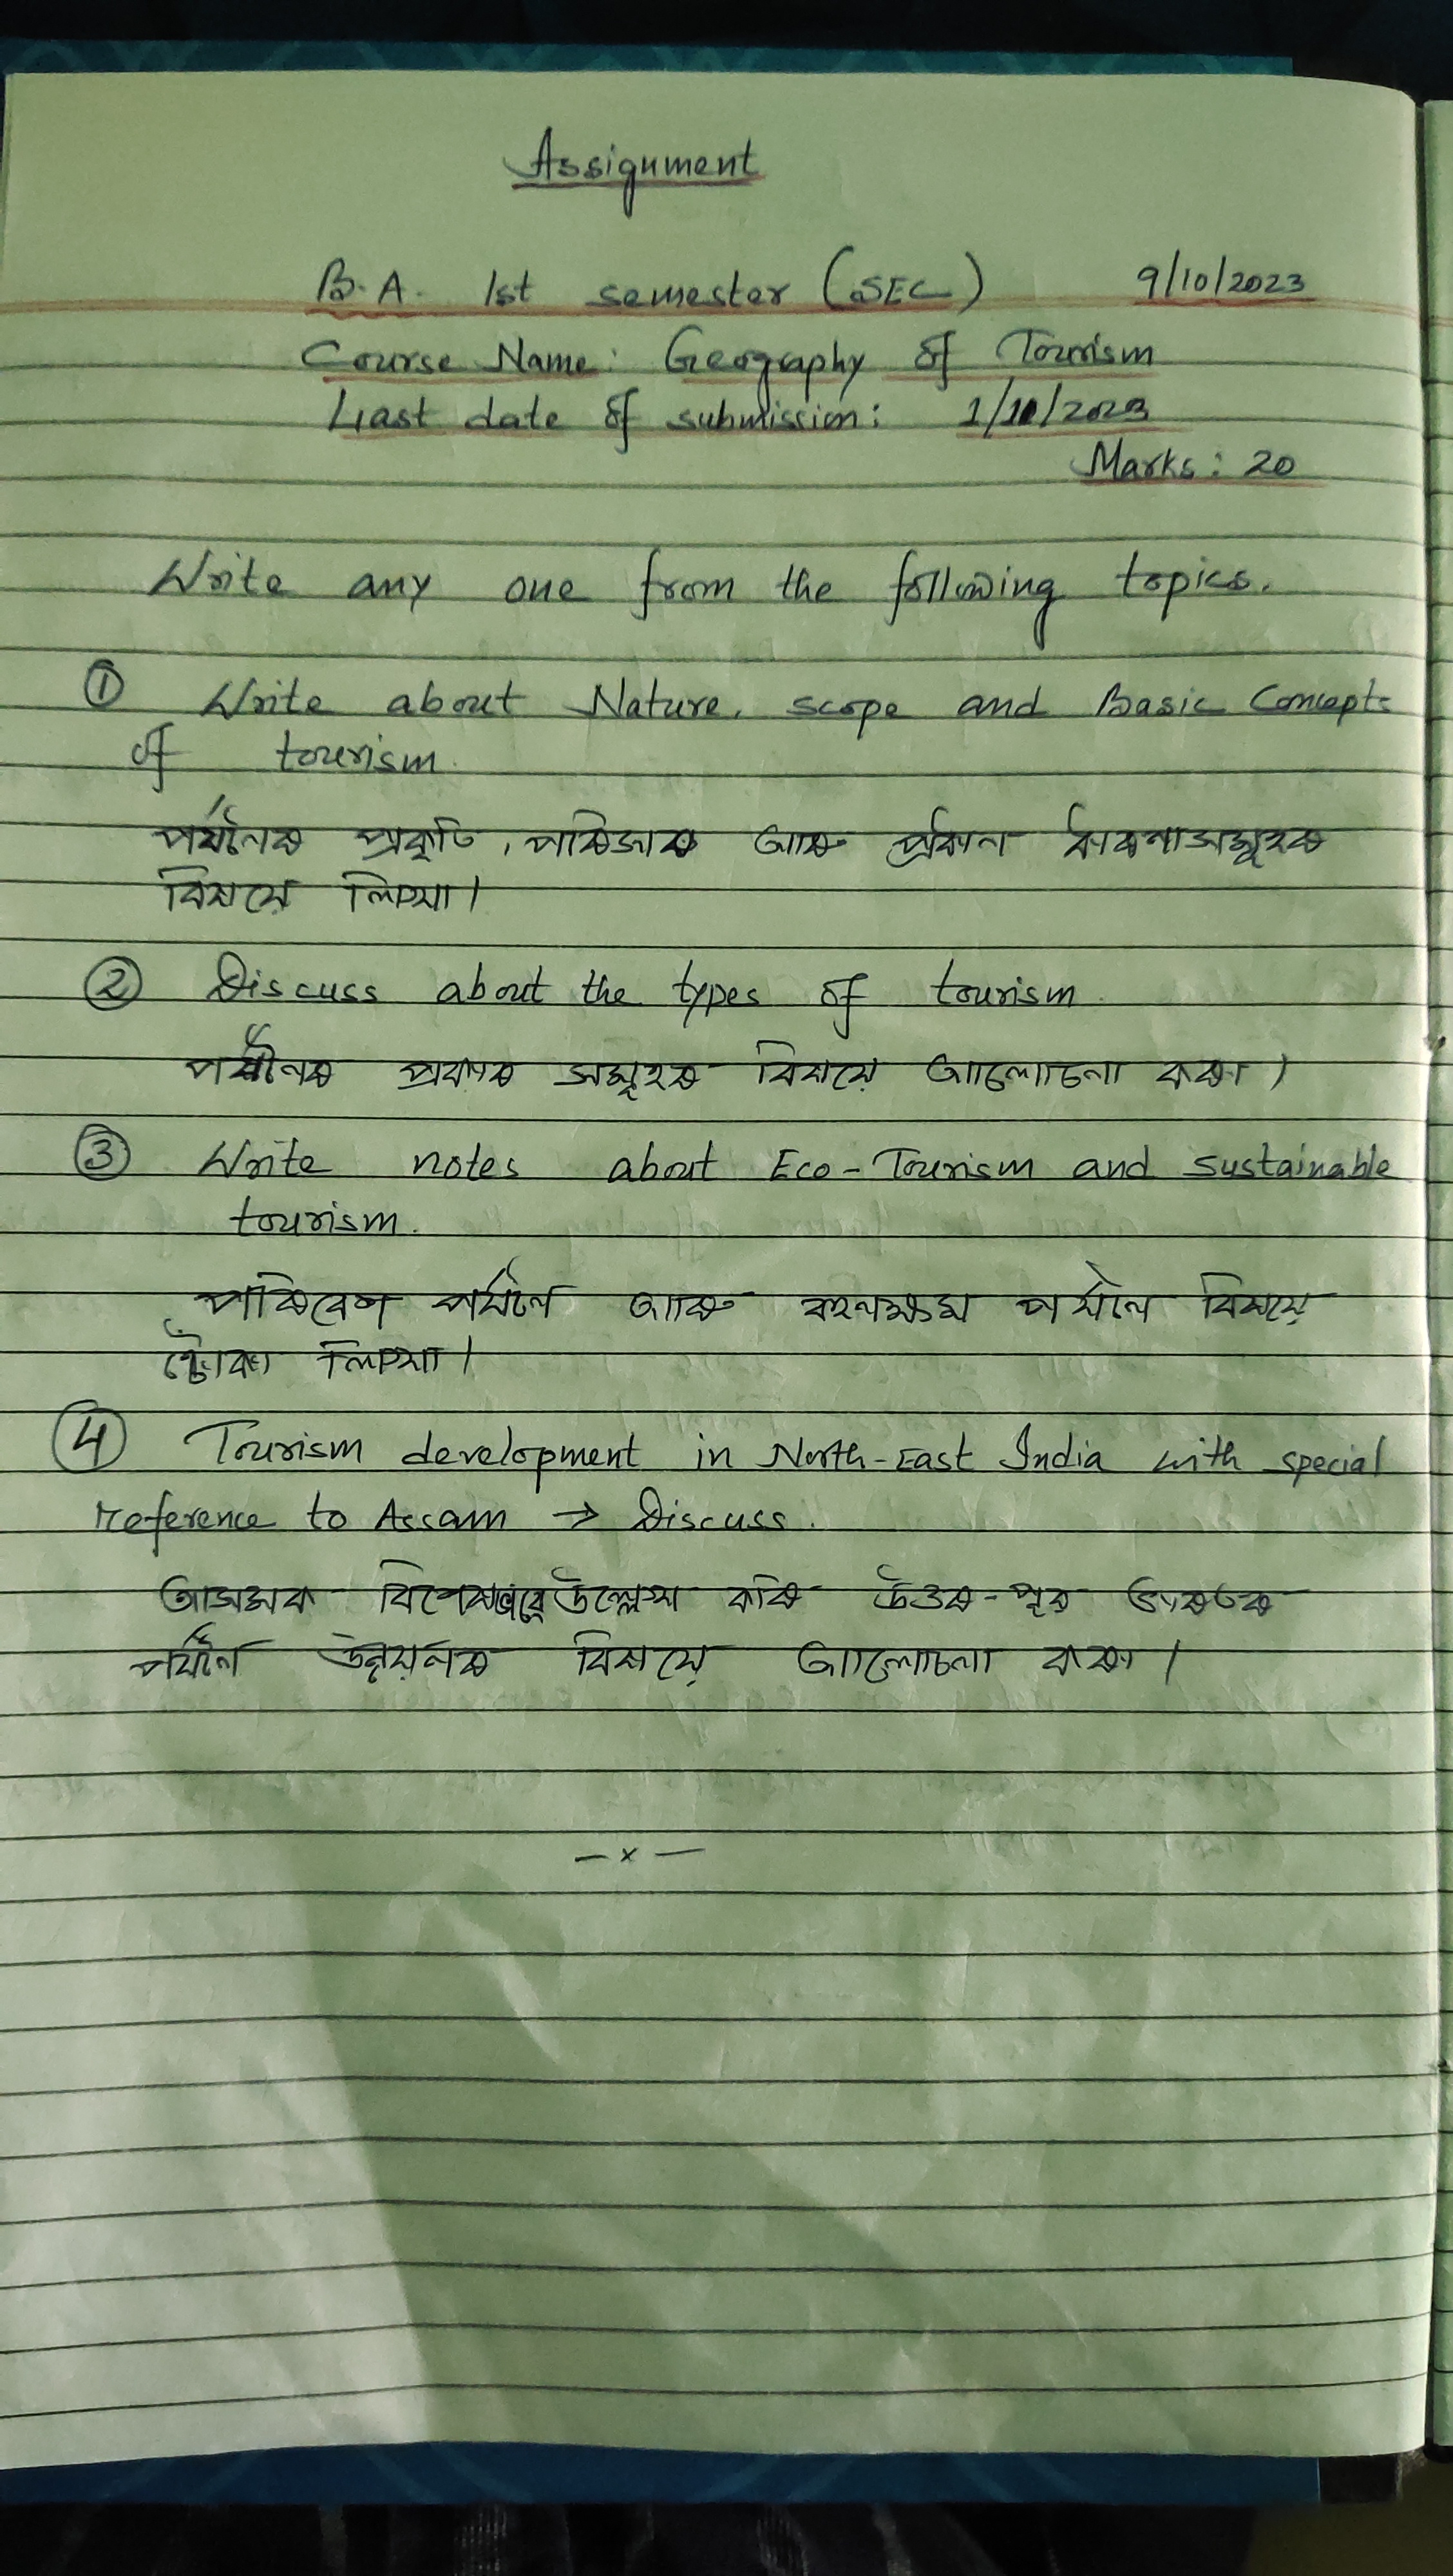 Assignment
B.A. 1st semester (SEC) 9/10/2023
Course Name: Geography of Tourism
Last date of submission: 1/11/2023
Marks: 20
Write any one from the following topics.
① Write about Nature, scope and Basic Concepts
of tourism.
পৰ্যটনৰ প্ৰকৃতি, পৰিসৰ আৰু ধাৰণাসমূহৰ
বিষয়ে লিখা।
② Discuss about the types of tourism.
পৰ্যটনৰ প্ৰকাৰ সমূহৰ বিষয়ে আলোচনা কৰা।
③ Write notes about Eco-Tourism and sustainable
tourism.
পৰিবেশ পৰ্যটন আৰু বহনক্ষম পৰ্যটন বিষয়ে
টোকা লিখা।
④ Tourism development in North-East India with special
reference to Assam → Discuss.
আসামৰ বিশেষভাৱে উল্লেখ কৰি উত্তৰ-পূব ভাৰতৰ
পৰ্যটন উন্নয়নৰ বিষয়ে আলোচনা কৰা।
—x—